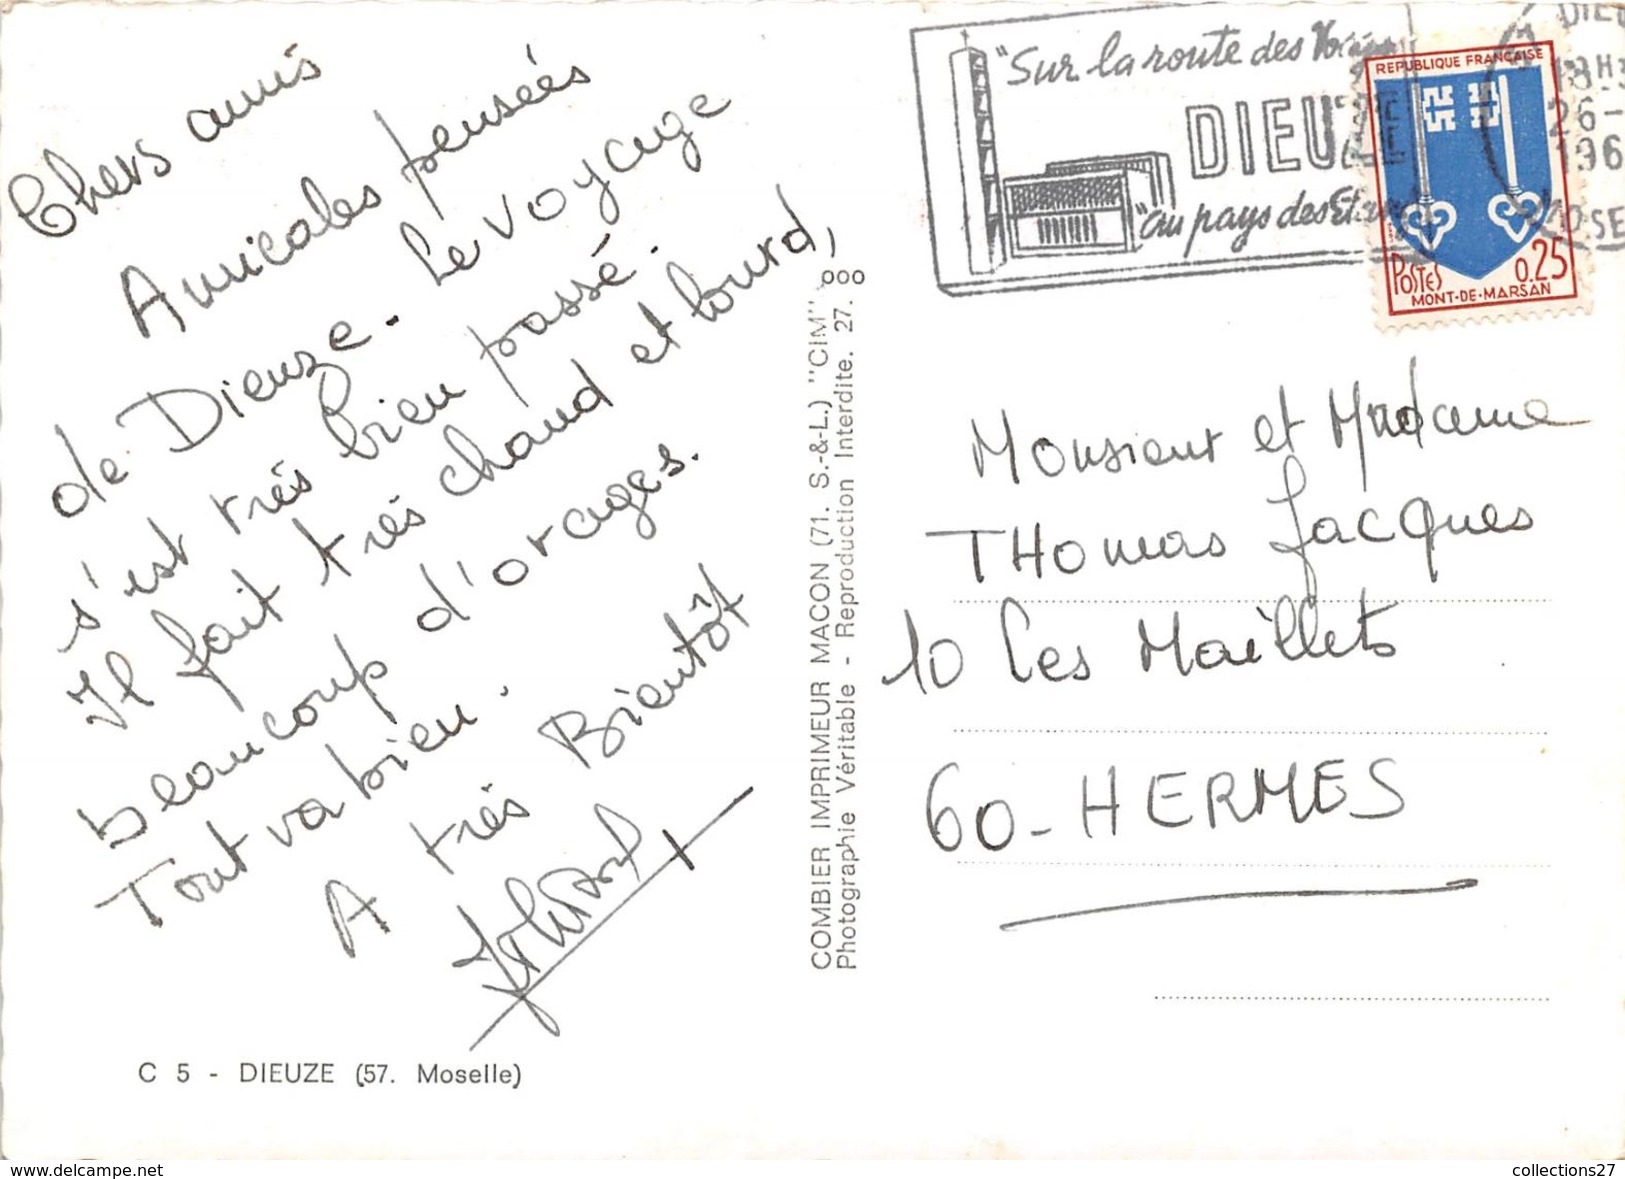 Chers amis
Amicales pensées
de Dieuze. Le voyage
s'est très bien passé.
Il fait très chaud et lourd,
beaucoup d'orages.
Tout va bien.
A très Bientôt
C 5 - DIEUZE (57. Moselle)
COMBIER IMPRIMEUR MACON (71. S.-&-L.) "CIM"
Photographie Véritable - Reproduction Interdite. 27. 000
"Sur la route des
DIEUZE
"au pays des
REPUBLIQUE FRANÇAISE
POSTES
0.25
MONT-DE-MARSAN
26-
196
Monsieur et Madame
THomas Jacques
10 Les Maillets
60-HERMES
www.delcampe.net
collections27